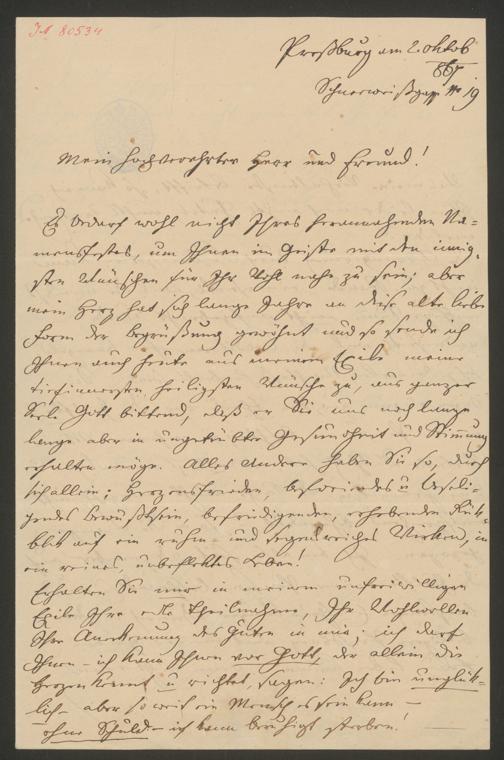 IN 80534
Preßburg am 2. Oktob
867
Schneeweißgasse No 19
Mein hochverehrter Herr und Freund!
Es bedarf wohl nicht Ihres herannahenden Na-
mensfestes, um Ihnen im Geiste mit den innig-
sten Wünschen für Ihr Wohl nahe zu sein; aber
mein Herz hat sich lange Jahre an diese alte liebe
Form der Begrüßung gewöhnt und so sende ich
Ihnen auch heute aus meinem Exile meine
tiefinnersten heiligsten Wünsche zu, aus ganzer
Seele Gott bittend, daß er Sie uns noch lange
lange aber in ungetrübter Gesundheit und Stimmung
erhalten möge. Alles Andere haben Sie so, durch
sich allein; Herzensfrieden, u beseli-
gendes Bewußtsein, befriedigenden, erhebenden Rück-
blik auf ein ruhm- und segensreiches Wirken, in
ein reines, unbeflektes Leben!
Erhalten Sie mir in meinem unfreiwilligen
Exile Ihre edle Theilnahme, Ihr Wohlwollen
Ihre Anerkennung des Guten in mir; ich darf
Ihnen – ich kann Ihnen vor Gott, der allein die
Herzen kennt u richtet, sagen: Ich bin unglük-
lich aber so weit ein Mensch es sein kann –
ohne Schuld – ich kann beruhigt sterben!